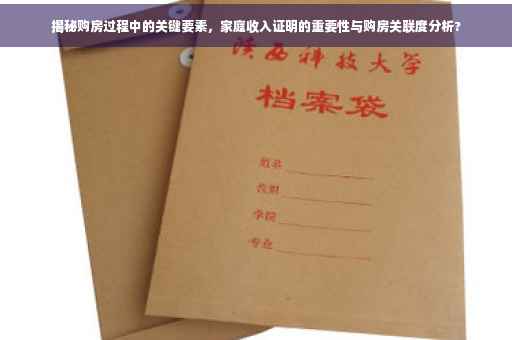 揭秘购房过程中的关键要素，家庭收入证明的重要性与购房关联度分析？
陕西科技大学
档案袋
姓名
学院
专业